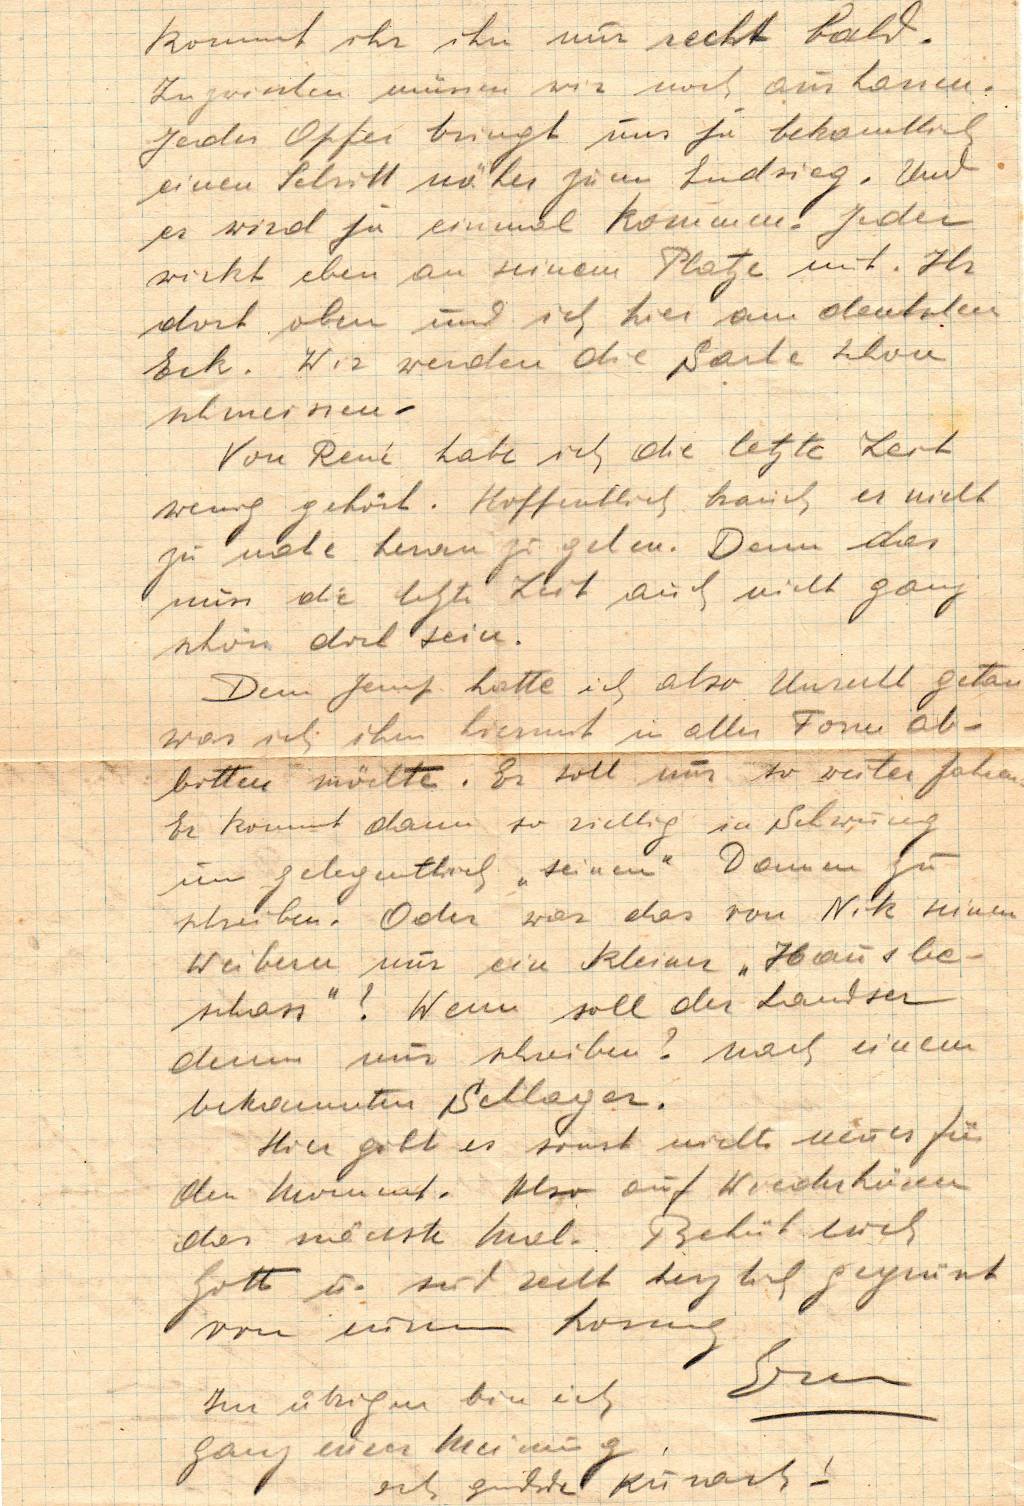 kommt ihr ihn nur recht bald.
Inzwischen müssen wir noch ausharren.
Jedes Opfer bringt uns ja bekanntlich
einen Schritt näher zum Endsieg. Und
er wird ja einmal kommen. Jeder
wirkt eben an seinem Platze mit. Ihr
dort oben und ich hier am deutschen
Eck. Wir werden die Sache schon
schmeissen.
Von René habe ich die letzte Zeit
wenig gehört. Hoffentlich brauch er nicht
zu nahe heran zu gehen. Denn das
muss die letzte Zeit auch nicht ganz
schön dort sein.
Dem Jemp hatte ich also Unrecht getan
was ich ihm hiermit in aller Form ab-
bitten möchte. Er soll nur so weiter fahren.
Er kommt dann so richtig in Schwung
um gelegentlich „seinen“ Damen zu
schreiben. Oder war das von Nik seinen
Weibern nur ein kleiner
„? Wem soll der Landser
denn nur schreiben? nach einem
bekannten Schlager.
Hier gibt es sonst nichts neues für
den Moment. Also auf Wiederhören
das nächste Mal. Behüt euch
Gott u. seid recht herzlich gegrüsst
von eurem
Im übrigen bin ich
ganz eurer Meinung,
ech Kurasch!